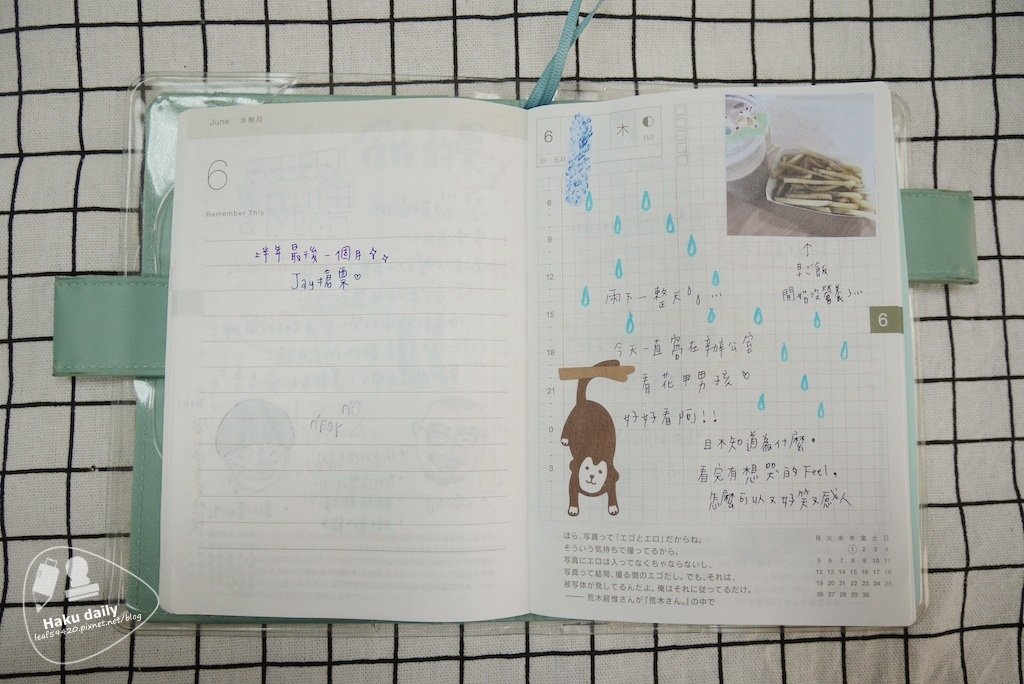 June 水無月
6
Remember This
上半年最後一個月
Jay搶票♡
6
木
152
旧 五月
6
9
12
15
18
21
0
3
↑
早ご飯
雨下一整天 ...
6
今天一直窩在辦公室
看花甲男孩♡
好好看阿!!
且不知道為什麼。
看完有想哭的Feel。
怎麼可以又好笑又感人
ほら、写真って『エゴとエロ』だからね。
そういう気持ちで撮ってるから。
写真にエロは入ってなくちゃならないし、
写真って結局、撮る側のエゴだし。でも、それは、
被写体が発してるんだよ。俺はそれに従ってるだけ。
―― 荒木経惟さんが『荒木さん。』の中で
月 火 水 木 金 土 日
1 2 3 4
5 6 7 8 9 10 11
12 13 14 15 16 17 18
19 20 21 22 23 24 25
26 27 28 29 30
Haku daily
leaf59420.pixnet.net/blog